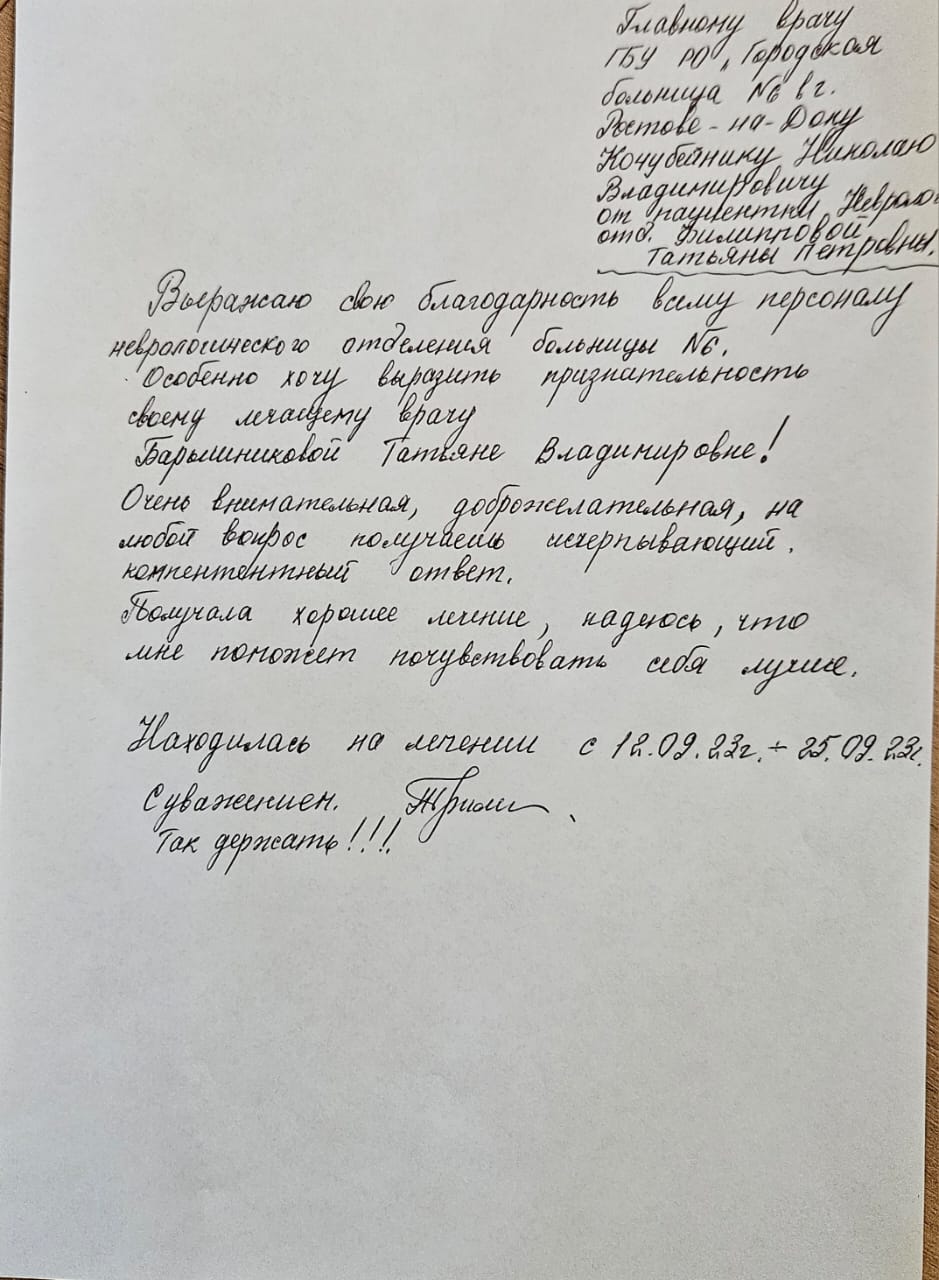 Главному врачу
ГБУ РО „Городская
больница №6 в г.
Ростове-на-Дону
Кочубейнику Николаю
Владимировичу
от пациентки Невроло
отд. Филипповой
Татьяны Петровны.
Выражаю свою благодарность всему персоналу
неврологического отделения больницы №6.
Особенно хочу выразить признательность
своему лечащему врачу
Барышниковой Татьяне Владимировне!
Очень внимательная, доброжелательная, на
любой вопрос получаешь исчерпывающий,
компентентный ответ.
Получала хорошее лечение, надеюсь, что
мне поможет почувствовать себя лучше.
Находилась на лечении с 12.09.23г. ÷ 25.09.23г.
С уважением.
Так держать!!!